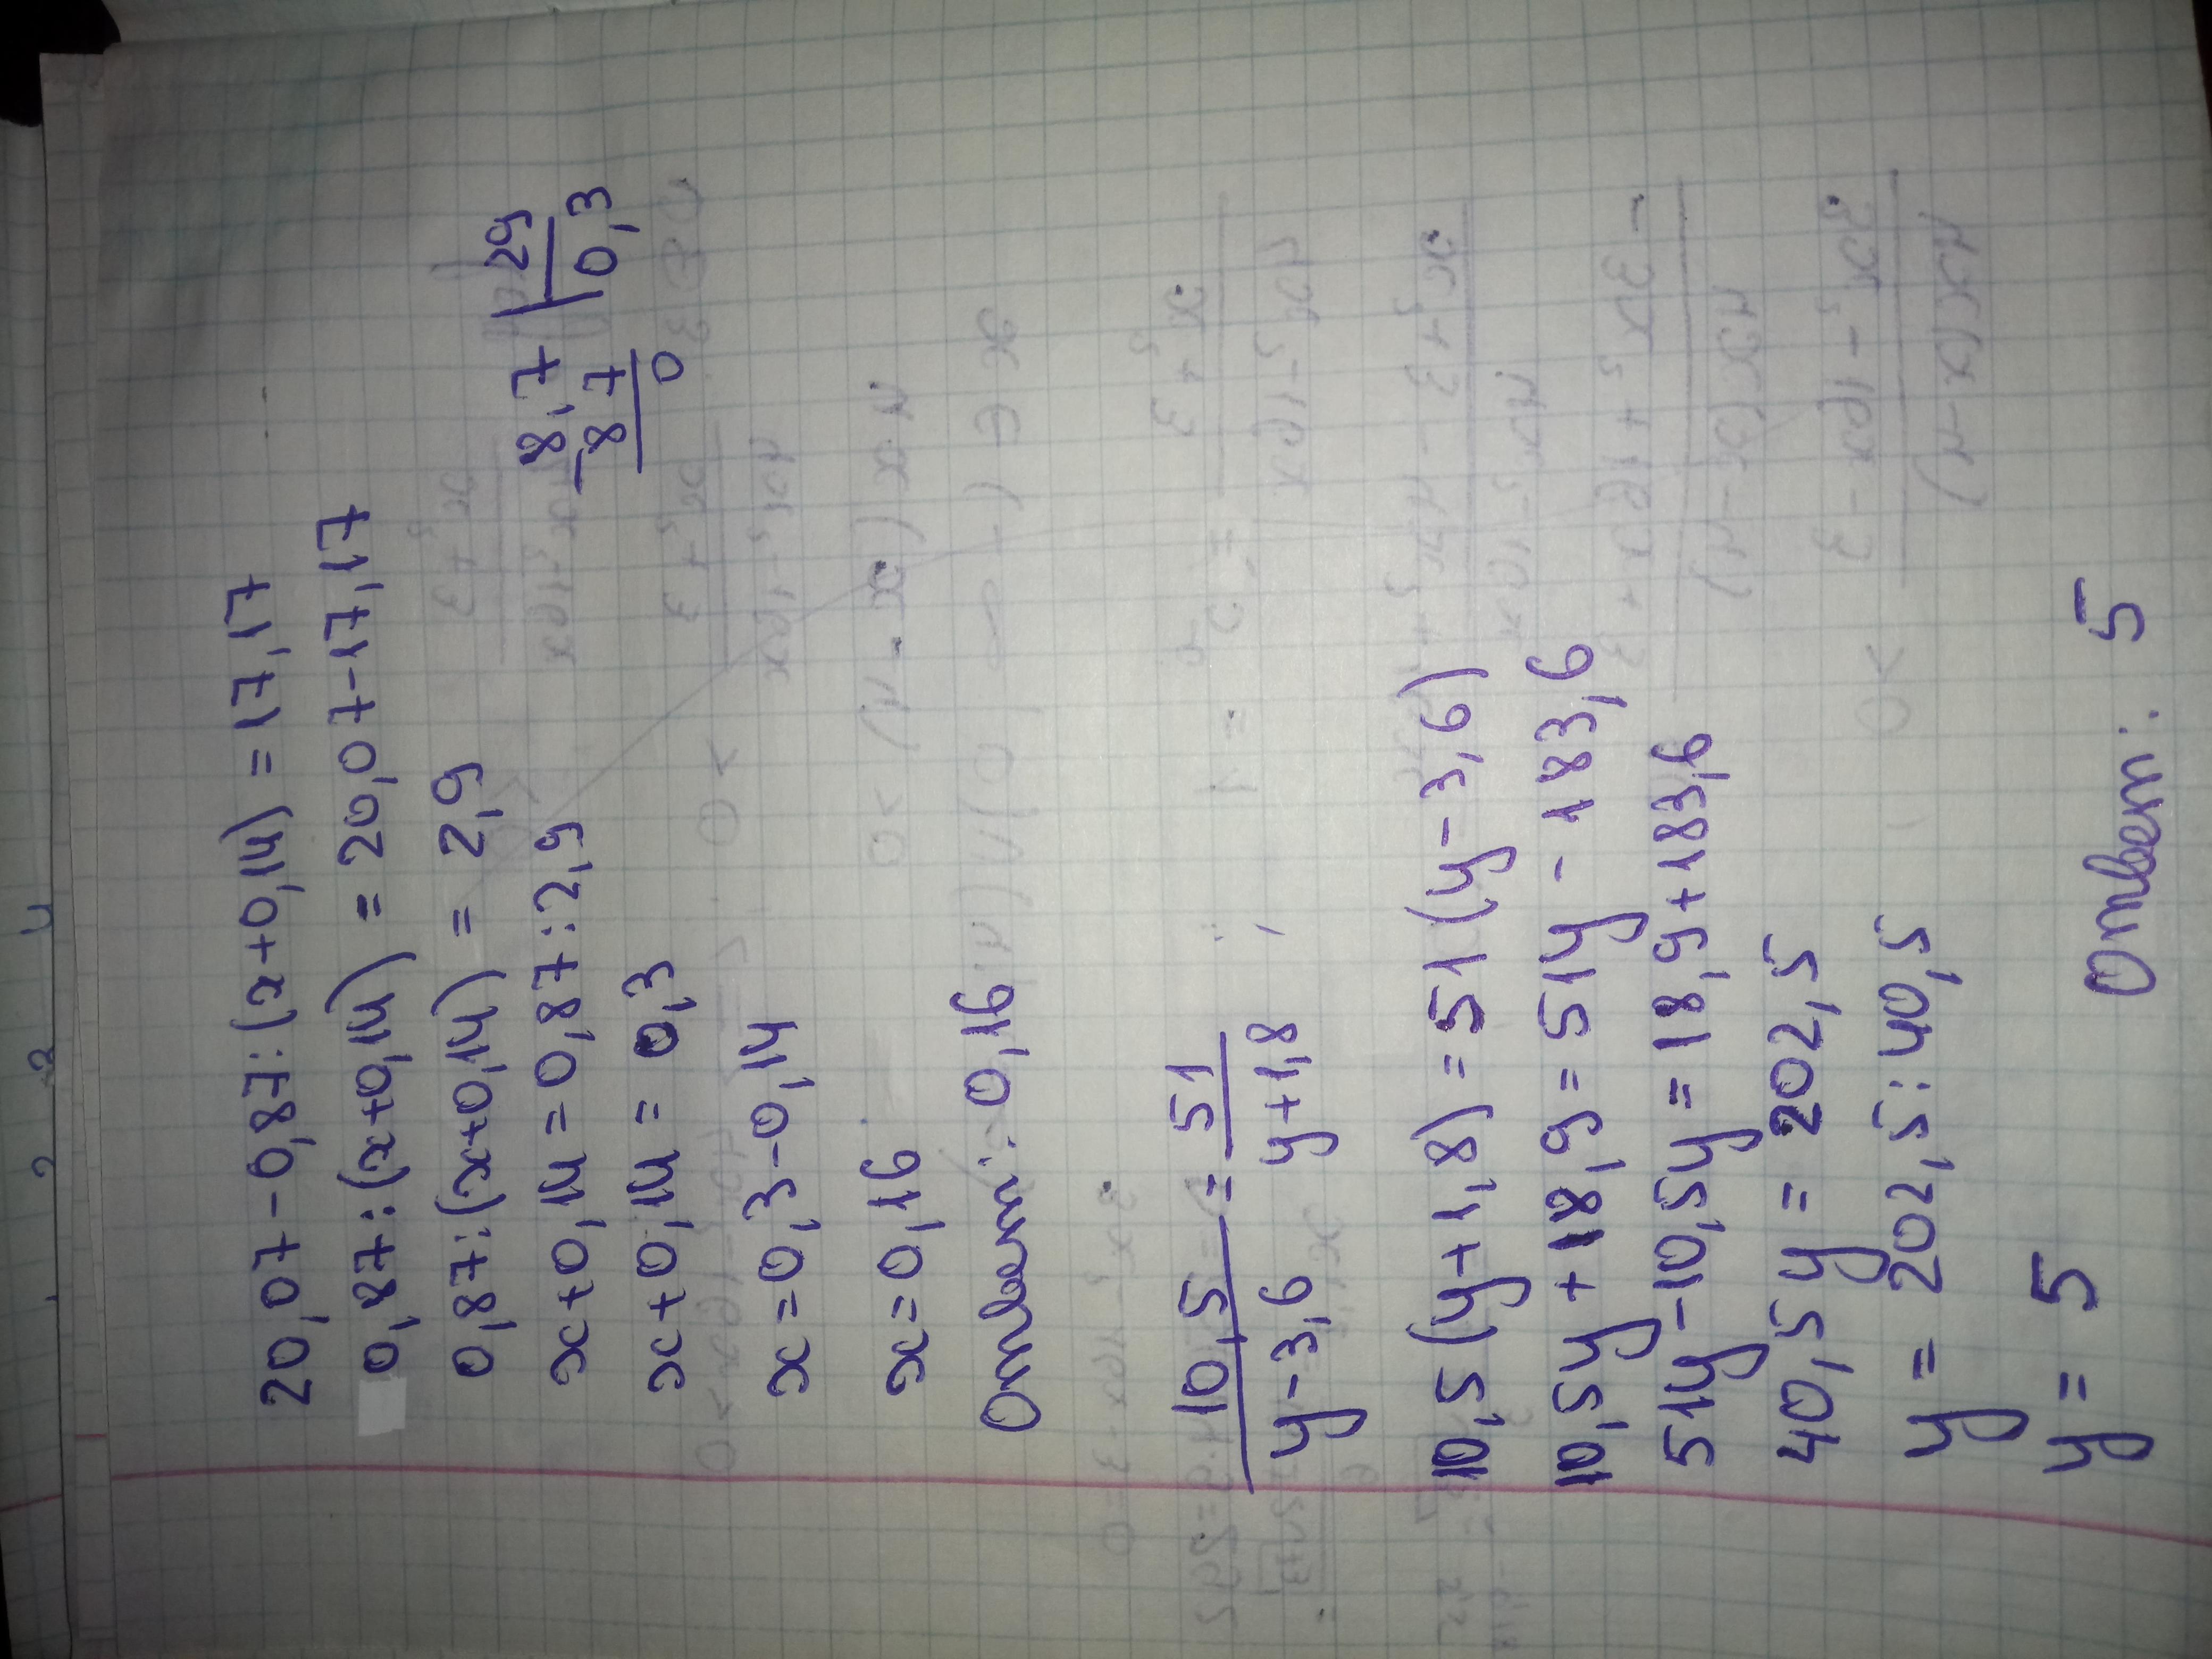 20,07-0,87:(x+0,14)=17,17
0,87:(x+0,14)=20,07-17,17
0,87:(x+0,14)=2,9
x+0,14=0,87:2,9
x+0,14=0,3
x=0,3-0,14
x=0,16
Ответ: 0,16
8,7 | 29
- 8 7 | 0,3
0
10,5/(y-3,6) = 51/(y+1,8)
10,5(y+1,8)=51(y-3,6)
10,5y+18,9=51y-183,6
51y-10,5y=18,9+183,6
40,5y=202,5
y=202,5:40,5
y=5
Ответ: 5